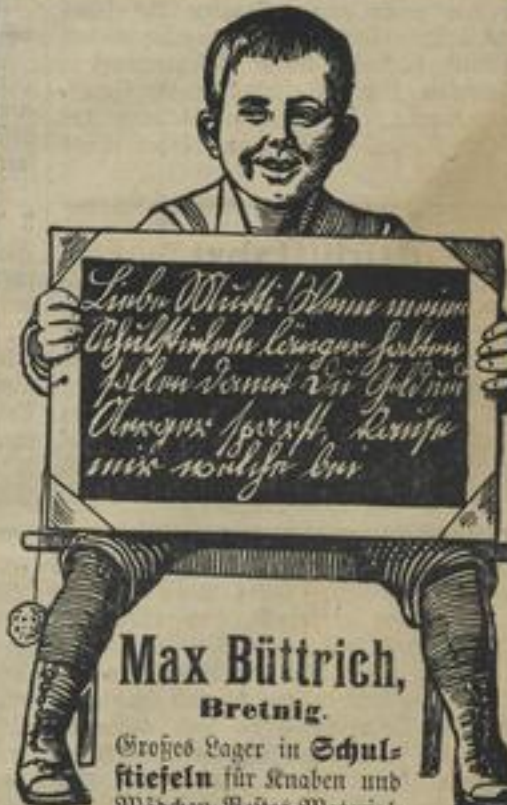 Liebe Mutti! Wenn meine
Schulstiefeln länger halten
sollen damit Du Geld und
Aerger sparst, kaufe
mir welche bei
Max Büttrich,
Bretnig.
Großes Lager in Schul-
stiefeln für Knaben und
Mädchen